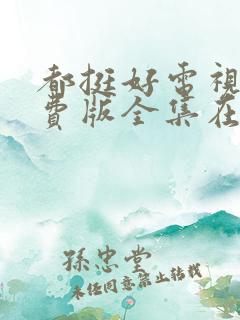 都挺好電視
費版全集在
孫忠堂
未经同意禁止转载